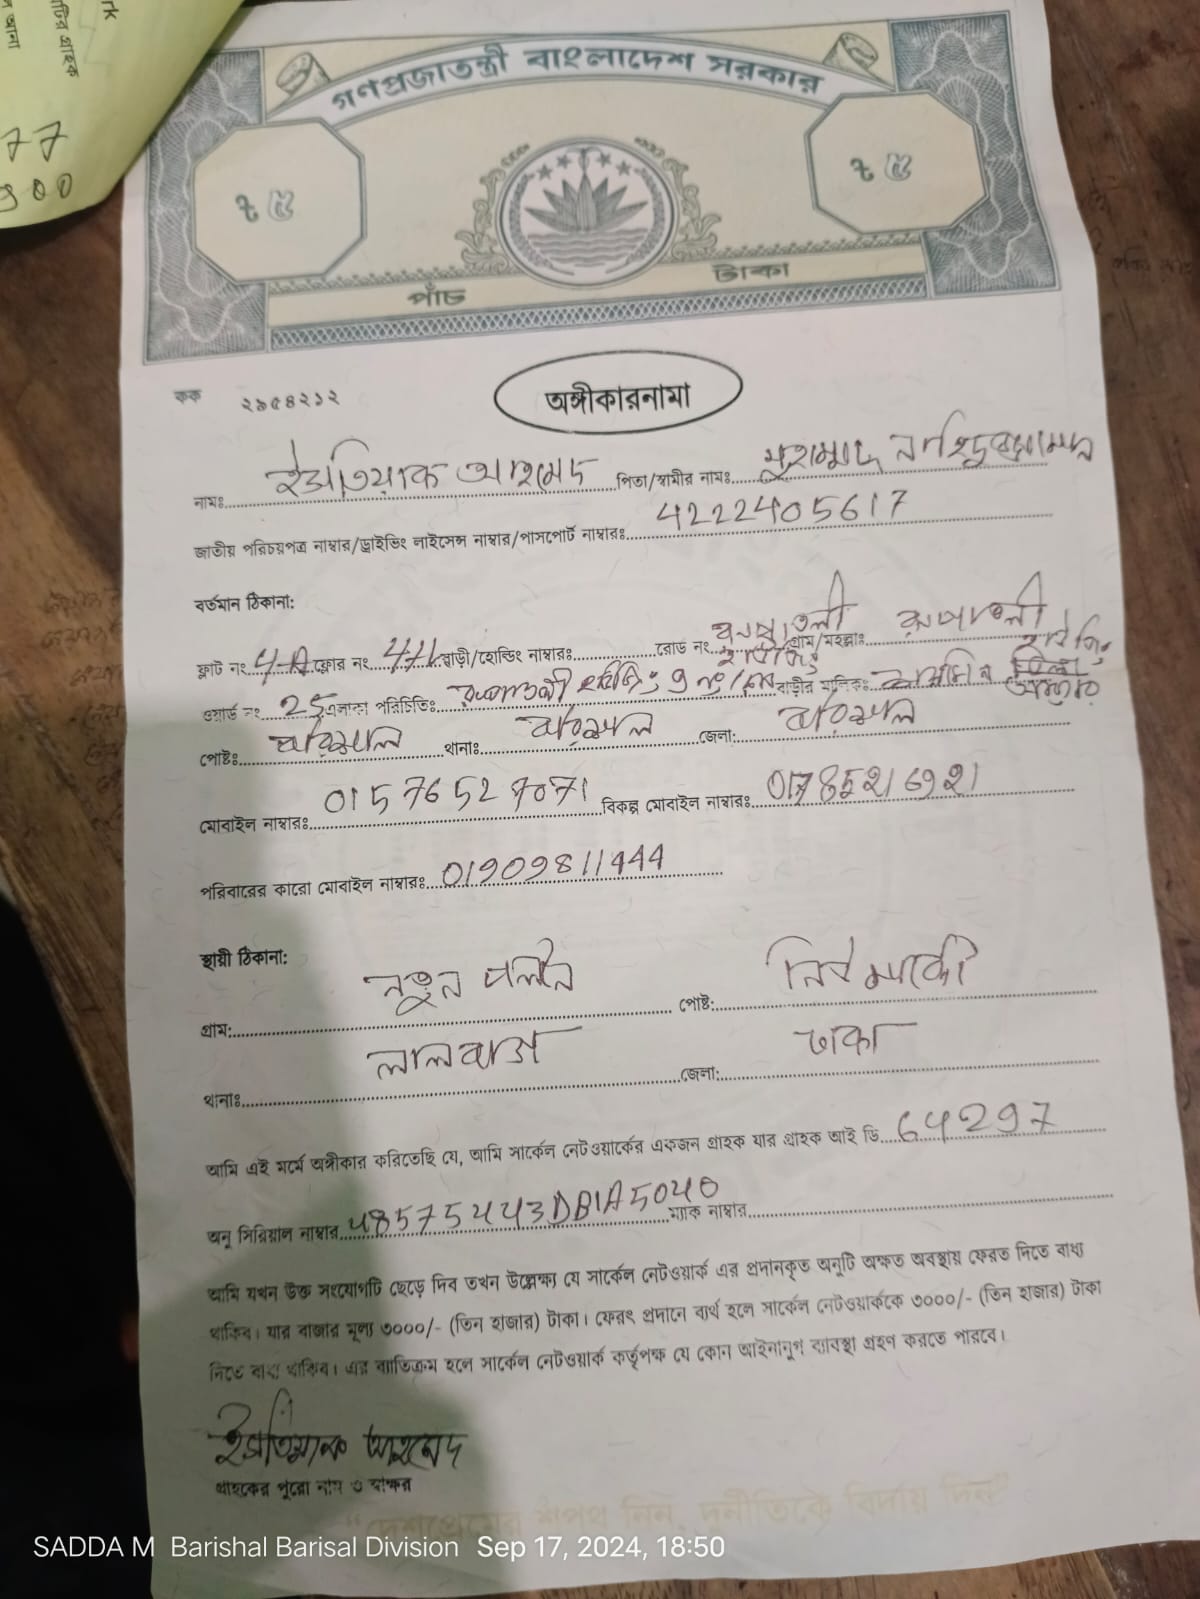 rk
টির গ্রাহক
আনা
77
900
গণপ্রজাতন্ত্রী বাংলাদেশ সরকার
৳ ৫ ৳ ৫
পাঁচ টাকা
কক ২৯৫৪২১২
অঙ্গীকারনামা
নামঃ ইসতিয়াক আহমেদ পিতা/স্বামীর নামঃ মুহাম্মাদ
জাতীয় পরিচয়পত্র নাম্বার/ড্রাইভিং লাইসেন্স নাম্বার/পাসপোর্ট নাম্বারঃ 4222405617
বর্তমান ঠিকানা:
ফ্লাট নং 4-A ফ্লোর নং বাড়ী/হোল্ডিং নাম্বারঃ রোড নং রূপাতলী হাউজিং গ্রাম/মহল্লাঃ রূপাতলী হাউজিং
ওয়ার্ড নং 25 এলাকা পরিচিতিঃ রূপাতলী হাউজিং বাড়ীর মালিকঃ
পোষ্টঃ বরিশাল থানাঃ বরিশাল জেলা: বরিশাল
মোবাইল নাম্বারঃ 01576527071 বিকল্প মোবাইল নাম্বারঃ
পরিবারের কারো মোবাইল নাম্বারঃ 01909811444
স্থায়ী ঠিকানা:
গ্রাম: নতুন পল্টন পোষ্ট: নিউ মার্কেট
থানাঃ লালবাগ জেলা: ঢাকা
আমি এই মর্মে অঙ্গীকার করিতেছি যে, আমি সার্কেল নেটওয়ার্কের একজন গ্রাহক যার গ্রাহক আই ডি 64297
অনু সিরিয়াল নাম্বার 48575443DB1A5040 ম্যাক নাম্বার
আমি যখন উক্ত সংযোগটি ছেড়ে দিব তখন উল্লেক্ষ্য যে সার্কেল নেটওয়ার্ক এর প্রদানকৃত অনুটি অক্ষত অবস্থায় ফেরত দিতে বাধ্য
থাকিব। যার বাজার মূল্য ৩০০০/- (তিন হাজার) টাকা। ফেরৎ প্রদানে ব্যর্থ হলে সার্কেল নেটওয়ার্ককে ৩০০০/- (তিন হাজার) টাকা
দিতে বাধ্য থাকিব। এর ব্যাতিক্রম হলে সার্কেল নেটওয়ার্ক কর্তৃপক্ষ যে কোন আইনানুগ ব্যাবস্থা গ্রহণ করতে পারবে।
ইসতিয়াক আহমেদ
গ্রাহকের পুরো নাম ও স্বাক্ষর
"দেশপ্রেমের শপথ নিন, দুর্নীতিকে বিদায় দিন"
SADDA M Barishal Barisal Division Sep 17, 2024, 18:50